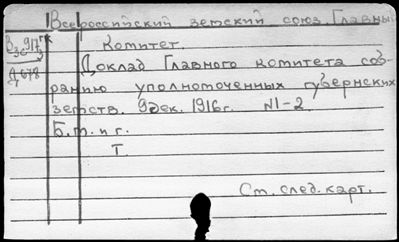 Всероссийский земский союз. Главный
Комитет.
Доклад Главного комитета соб-
ранию уполномоченных губернских
земств. 9 дек. 1916 г. №1-2
Б. м. и г.
Т.
См. след. карт.
Д 678